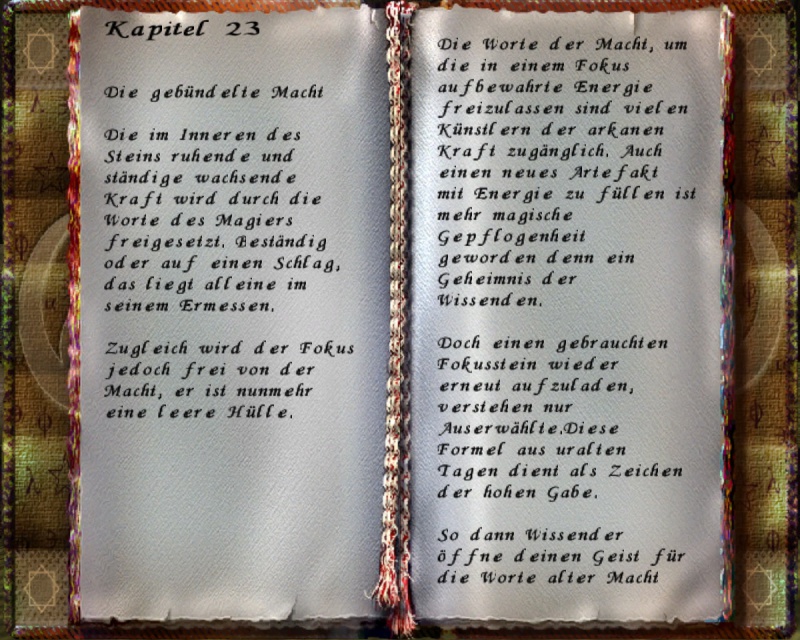 Kapitel 23
Die gebündelte Macht
Die im Inneren des
Steins ruhende und
ständige wachsende
Kraft wird durch die
Worte des Magiers
freigesetzt. Beständig
oder auf einen Schlag,
das liegt alleine im
seinem Ermessen.
Zugleich wird der Fokus
jedoch frei von der
Macht, er ist nunmehr
eine leere Hülle.
Die Worte der Macht, um
die in einem Fokus
aufbewahrte Energie
freizulassen sind vielen
Künstlern der arkanen
Kraft zugänglich. Auch
einen neues Artefakt
mit Energie zu füllen ist
mehr magische
Gepflogenheit
geworden denn ein
Geheimnis der
Wissenden.
Doch einen gebrauchten
Fokusstein wieder
erneut aufzuladen,
verstehen nur
Auserwählte.Diese
Formel aus uralten
Tagen dient als Zeichen
der hohen Gabe.
So dann Wissender
öffne deinen Geist für
die Worte alter Macht